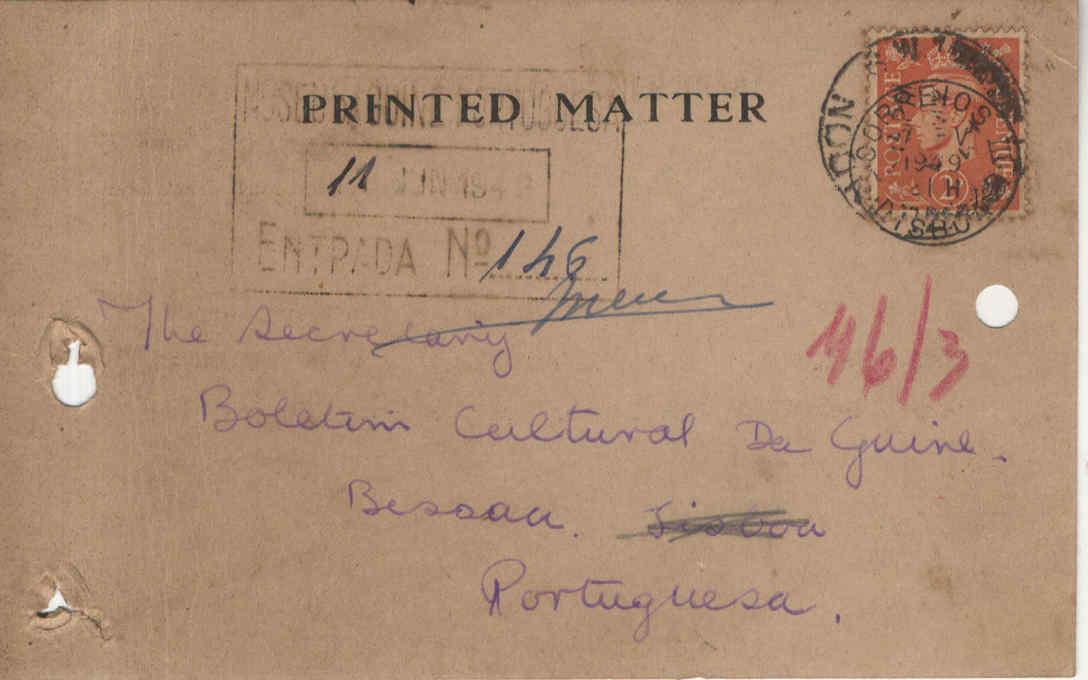 PRINTED MATTER
11 JUN 194
ENTRADA Nº 146
POSTAGE
LONDON
CORREIOS
1949
The Secretary
46/3
Boletim Cultural Da Guine.
Bessau. Lisboa
Portuguesa.